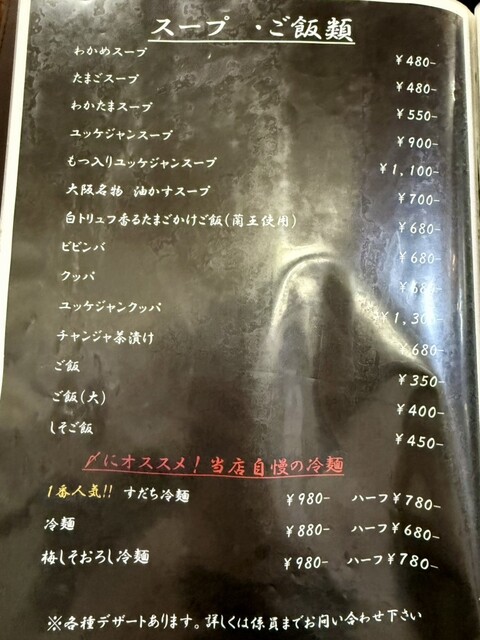 スープ ・ご飯類
わかめスープ ¥480-
たまごスープ ¥480-
わかたまスープ ¥550-
ユッケジャンスープ ¥900-
もつ入りユッケジャンスープ ¥1,100-
大阪名物 油かすスープ ¥700-
白トリュフ香るたまごかけご飯(蘭王使用) ¥680-
ビビンバ ¥680-
クッパ ¥680-
ユッケジャンクッパ ¥1,300-
チャンジャ茶漬け ¥680-
ご飯 ¥350-
ご飯(大) ¥400-
しそご飯 ¥450-
〆にオススメ!当店自慢の冷麺
1番人気!! すだち冷麺 ¥980- ハーフ¥780-
冷麺 ¥880- ハーフ¥680-
梅しそおろし冷麺 ¥980- ハーフ¥780-
※各種デザートあります。詳しくは係員までお問い合わせ下さい